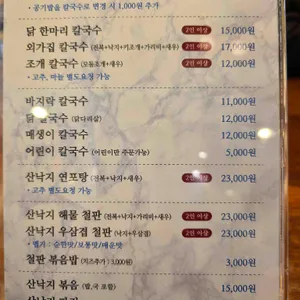 • 공기밥을 칼국수로 변경 시 1,000원 추가
닭 한마리 칼국수 2인 이상 15,000원
외가집 칼국수 (전복+낙지+키조개+가리비+새우) 2인 이상 17,000원
조개 칼국수 (모듬조개+새우) 2인 이상 12,000원
• 고추, 마늘 별도요청 가능
바지락 칼국수 11,000원
닭 칼국수 (닭다리살) 12,000원
매생이 칼국수 12,000원
어린이 칼국수 (어린이만 주문가능) 5,000원
산낙지 연포탕 (전복+낙지+새우) 2인 이상 23,000원
• 고추 별도요청 가능
산낙지 해물 철판 (전복+낙지+가리비+새우) 2인 이상 23,000원
산낙지 우삼겹 철판 (낙지+우삼겹) 2인 이상 23,000원
• 맵기 : 순한맛/보통맛/매운맛
철판 볶음밥 (치즈추가 3,000원) 3,000원
산낙지 볶음 (밥,국 포함) 15,000원
산낙지